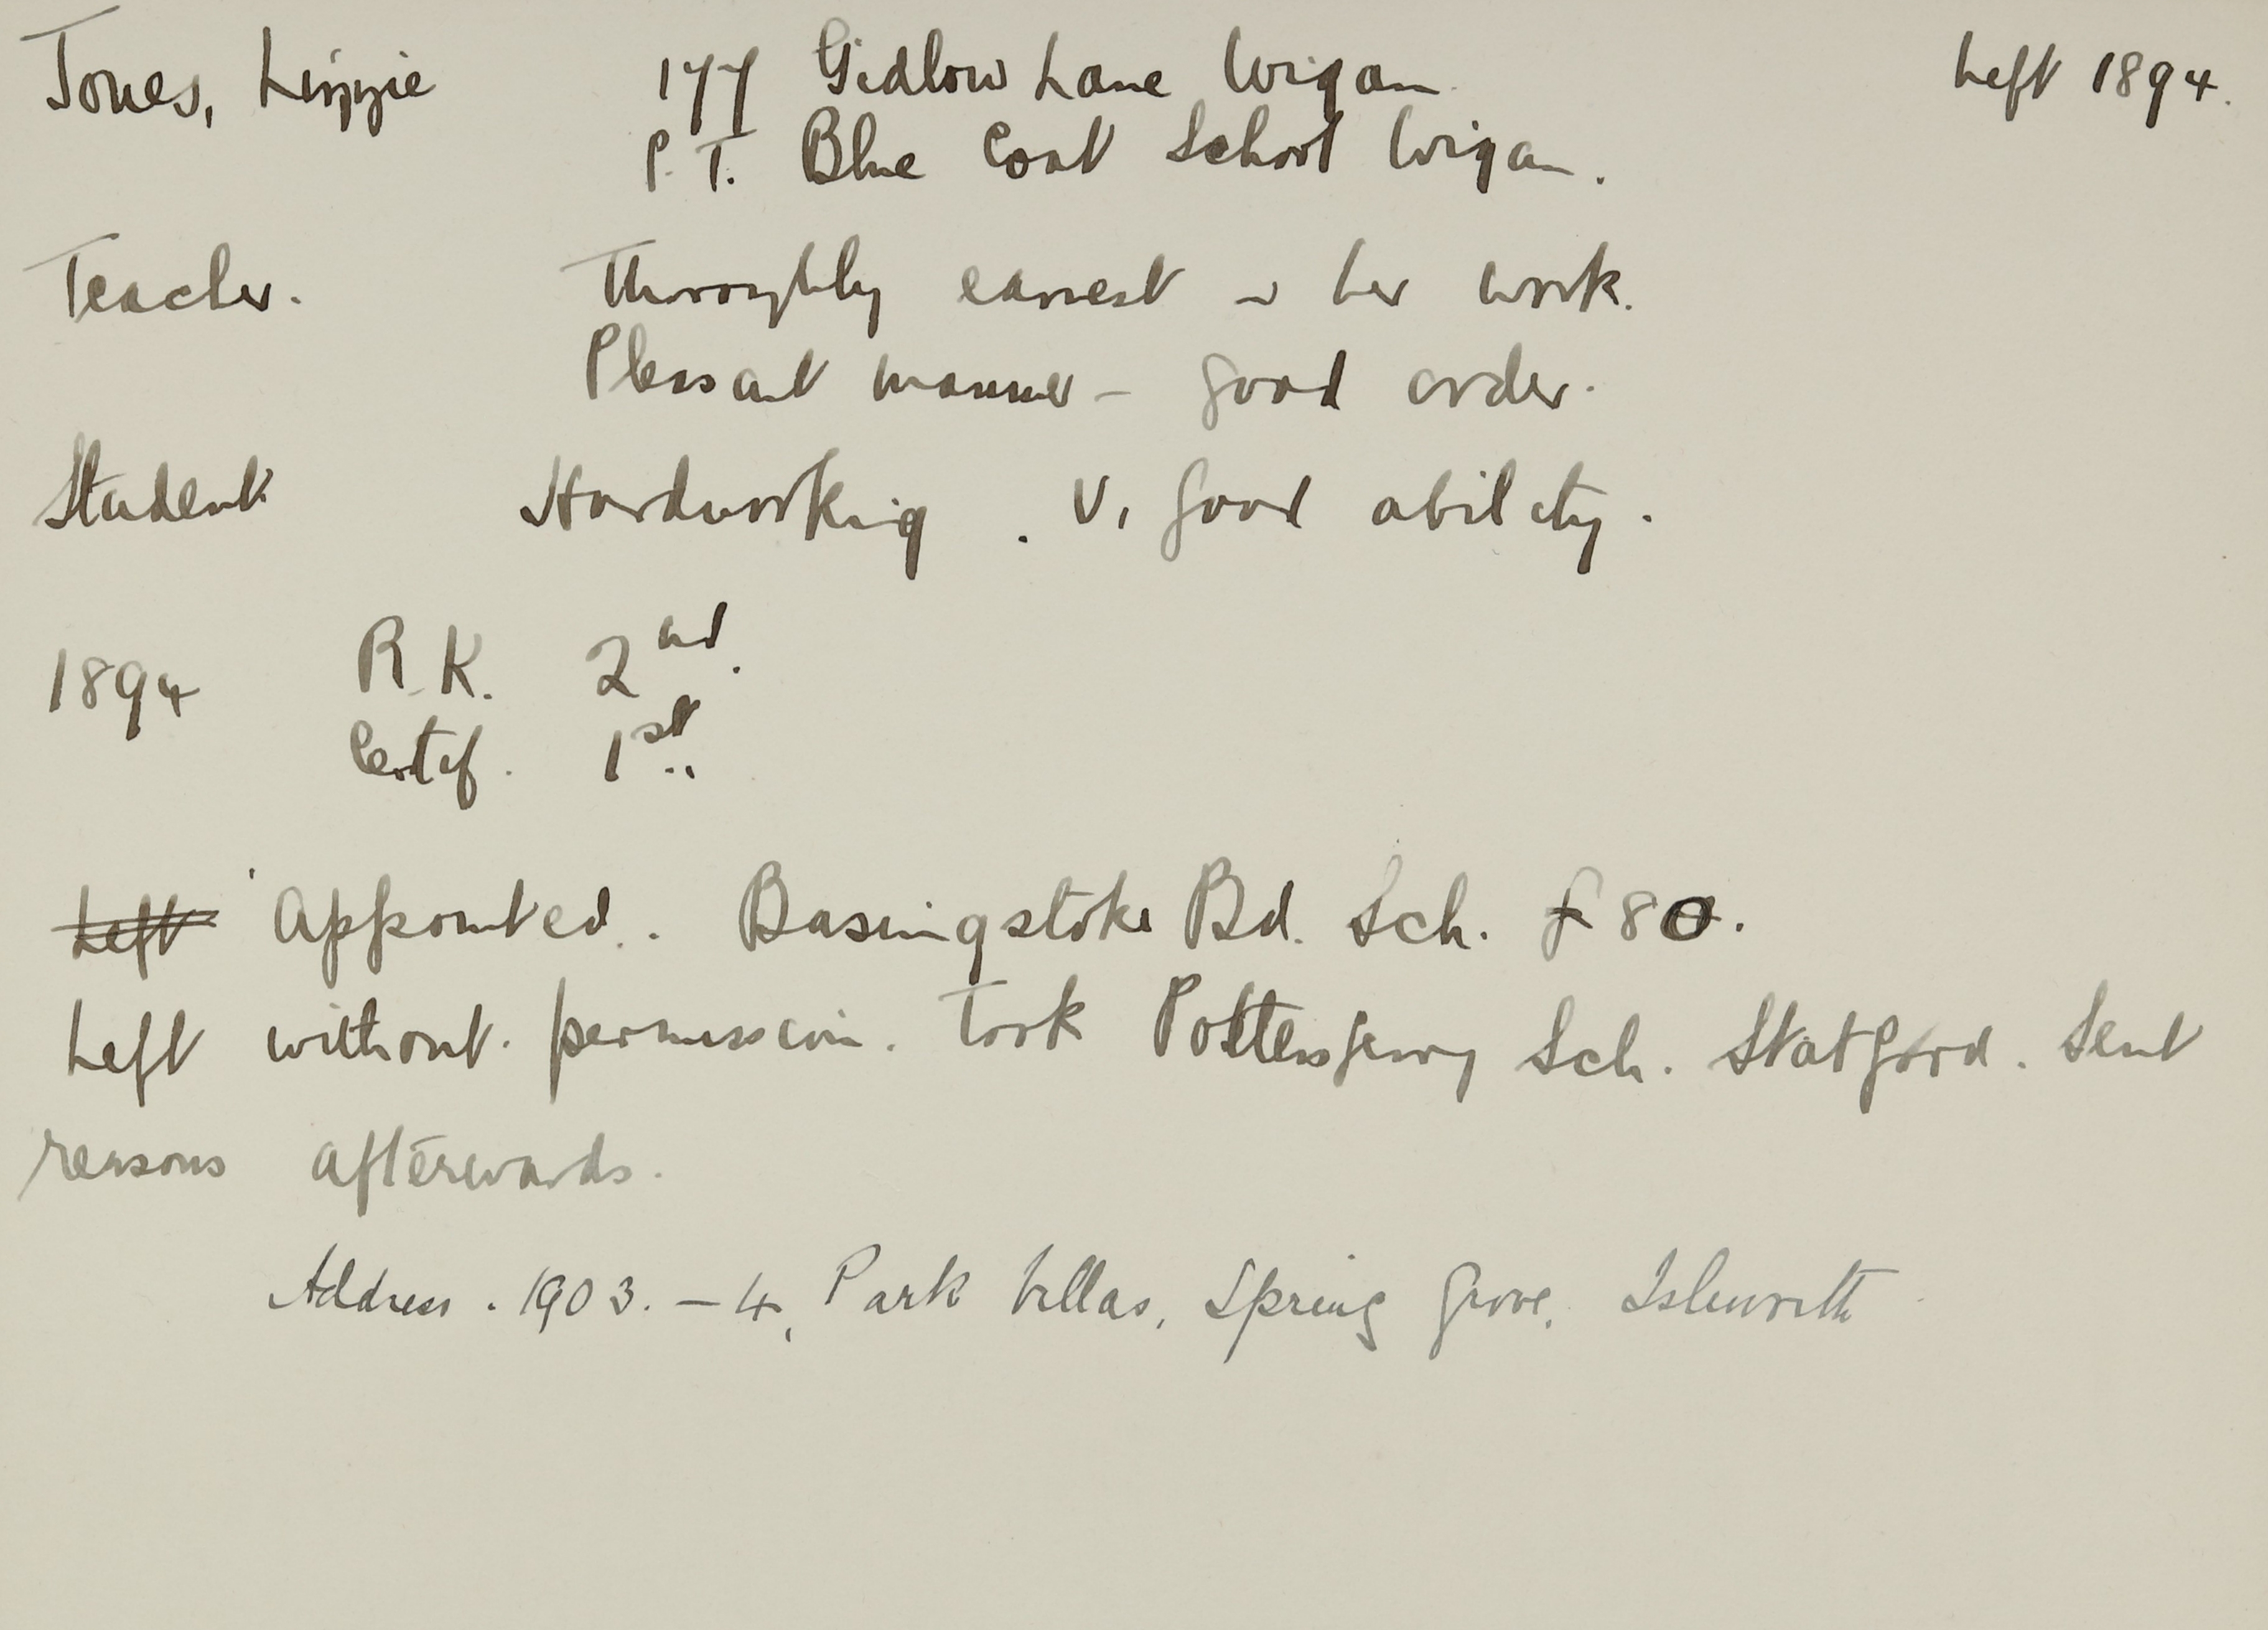 Jones, Lizzie 177 Gidlow Lane Wigan. Left 1894.
P.T. Blue Coat School Wigan.
Teacher. Thoroughly earnest in her work.
Pleasant manner – good order.
Student Hardworking. V. good ability.
1894 R.K. 2nd.
Certif. 1st.
Left Appointed. Basingstoke Bd. Sch. £80.
Left without permission. Took Sch. Sent
reasons afterwards.
Address. 1903. – 4, Park Villas, Spring Grove, Isleworth